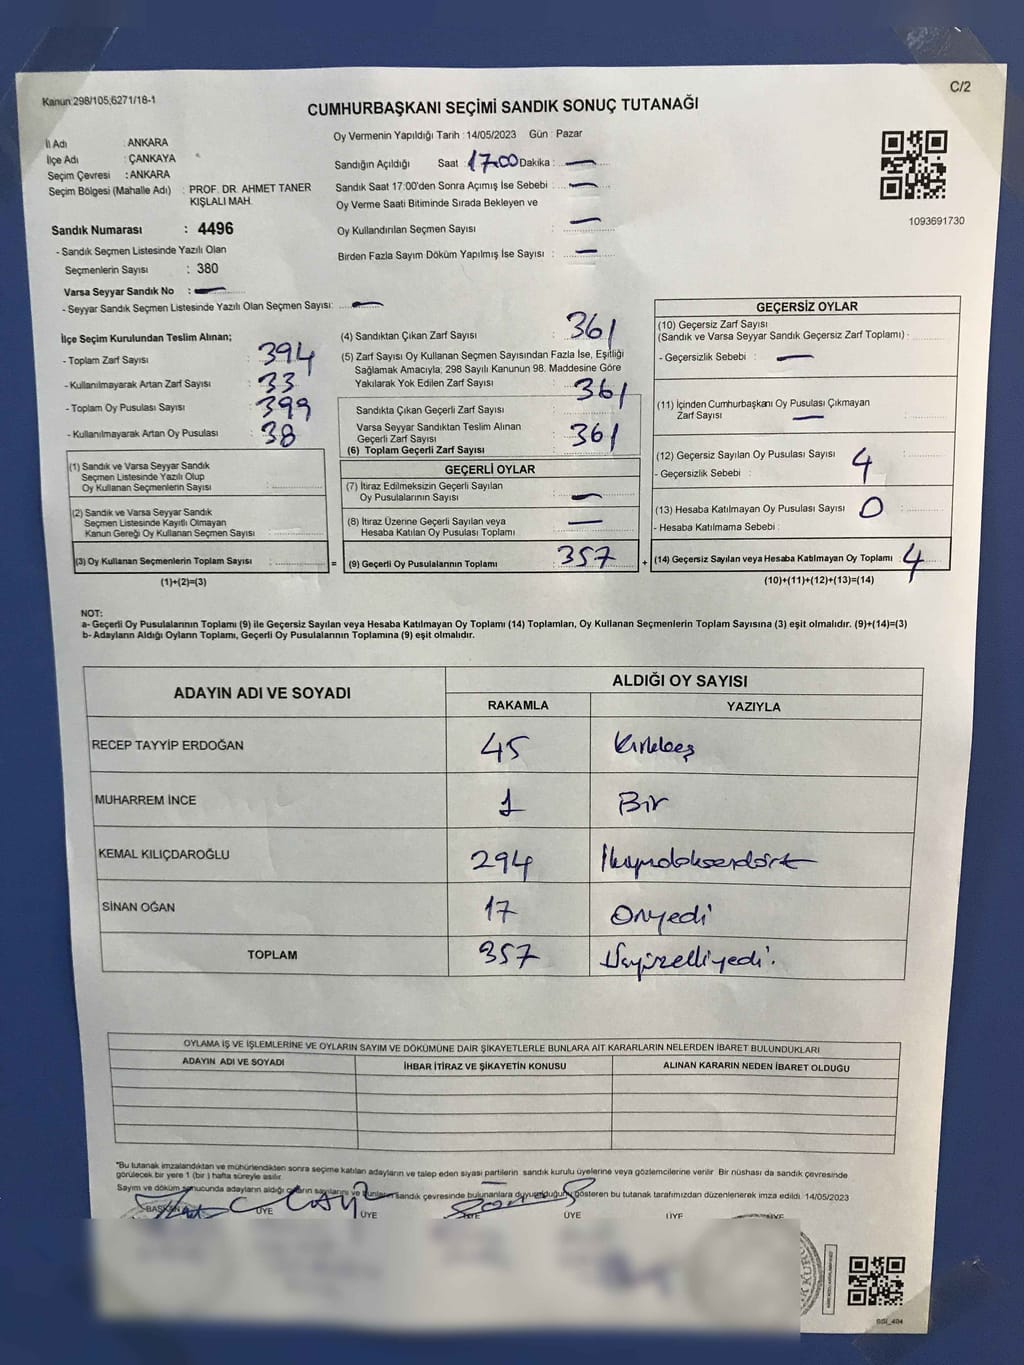 Kanun:298/105,6271/18-1
C/2
CUMHURBAŞKANI SEÇİMİ SANDIK SONUÇ TUTANAĞI
İl Adı : ANKARA
İlçe Adı : ÇANKAYA
Seçim Çevresi : ANKARA
Seçim Bölgesi (Mahalle Adı) : PROF. DR. AHMET TANER
KIŞLALI MAH.
Sandık Numarası : 4496
- Sandık Seçmen Listesinde Yazılı Olan
Seçmenlerin Sayısı : 380
Varsa Seyyar Sandık No : —
- Seyyar Sandık Seçmen Listesinde Yazılı Olan Seçmen Sayısı: —
Oy Vermenin Yapıldığı Tarih : 14/05/2023 Gün : Pazar
Sandığın Açıldığı Saat : 17.00 Dakika : —
Sandık Saat 17:00'den Sonra Açımış İse Sebebi : —
Oy Verme Saati Bitiminde Sırada Bekleyen ve
Oy Kullandırılan Seçmen Sayısı : —
Birden Fazla Sayım Döküm Yapılmış İse Sayısı : —
1093691730
İlçe Seçim Kurulundan Teslim Alınan;
- Toplam Zarf Sayısı : 394
- Kullanılmayarak Artan Zarf Sayısı : 33
- Toplam Oy Pusulası Sayısı : 399
- Kullanılmayarak Artan Oy Pusulası : 38
(1) Sandık ve Varsa Seyyar Sandık
Seçmen Listesinde Yazılı Olup
Oy Kullanan Seçmenlerin Sayısı :
(2) Sandık ve Varsa Seyyar Sandık
Seçmen Listesinde Kayıtlı Olmayan
Kanun Gereği Oy Kullanan Seçmen Sayısı :
(3) Oy Kullanan Seçmenlerin Toplam Sayısı : =
(1)+(2)=(3)
(4) Sandıktan Çıkan Zarf Sayısı : 361
(5) Zarf Sayısı Oy Kullanan Seçmen Sayısından Fazla İse, Eşitliği
Sağlamak Amacıyla; 298 Sayılı Kanunun 98. Maddesine Göre
Yakılarak Yok Edilen Zarf Sayısı :
Sandıkta Çıkan Geçerli Zarf Sayısı : 361
Varsa Seyyar Sandıktan Teslim Alınan
Geçerli Zarf Sayısı :
(6) Toplam Geçerli Zarf Sayısı : 361
GEÇERLİ OYLAR
(7) İtiraz Edilmeksizin Geçerli Sayılan
Oy Pusulalarının Sayısı : —
(8) İtiraz Üzerine Geçerli Sayılan veya
Hesaba Katılan Oy Pusulası Toplamı : —
(9) Geçerli Oy Pusulalarının Toplamı : 357 +
GEÇERSİZ OYLAR
(10) Geçersiz Zarf Sayısı
(Sandık ve Varsa Seyyar Sandık Geçersiz Zarf Toplamı) :
- Geçersizlik Sebebi : —
(11) İçinden Cumhurbaşkanı Oy Pusulası Çıkmayan
Zarf Sayısı : —
(12) Geçersiz Sayılan Oy Pusulası Sayısı : 4
- Geçersizlik Sebebi :
(13) Hesaba Katılmayan Oy Pusulası Sayısı : 0
- Hesaba Katılmama Sebebi :
(14) Geçersiz Sayılan veya Hesaba Katılmayan Oy Toplamı : 4
(10)+(11)+(12)+(13)=(14)
NOT:
a- Geçerli Oy Pusulalarının Toplamı (9) ile Geçersiz Sayılan veya Hesaba Katılmayan Oy Toplamı (14) Toplamları, Oy Kullanan Seçmenlerin Toplam Sayısına (3) eşit olmalıdır. (9)+(14)=(3)
b- Adayların Aldığı Oyların Toplamı, Geçerli Oy Pusulalarının Toplamına (9) eşit olmalıdır.
ADAYIN ADI VE SOYADI
ALDIĞI OY SAYISI
RAKAMLA YAZIYLA
RECEP TAYYİP ERDOĞAN 45 Kırkbeş
MUHARREM İNCE 1 Bir
KEMAL KILIÇDAROĞLU 294 İkiyüzdoksandört
SİNAN OĞAN 17 Onyedi
TOPLAM 357 Üçyüzelliyedi.
OYLAMA İŞ VE İŞLEMLERİNE VE OYLARIN SAYIM VE DÖKÜMÜNE DAİR ŞİKAYETLERLE BUNLARA AİT KARARLARIN NELERDEN İBARET BULUNDUKLARI
ADAYIN ADI VE SOYADI İHBAR İTİRAZ VE ŞİKAYETİN KONUSU ALINAN KARARIN NEDEN İBARET OLDUĞU
*Bu tutanak imzalandıktan ve mühürlendikten sonra seçime katılan adayların ve talep eden siyasi partilerin sandık kurulu üyelerine veya gözlemcilerine verilir. Bir nüshası da sandık çevresinde
görülecek bir yere 1 (bir) hafta süreyle asılır.
Sayım ve döküm sonucunda adayların aldığı oyların sayılarını ve bunların sandık çevresinde bulunanlara duyurulduğunu gösteren bu tutanak tarafımızdan düzenlenerek imza edildi. 14/05/2023
BAŞKAN ÜYE ÜYE ÜYE ÜYE ÜYE ÜYE